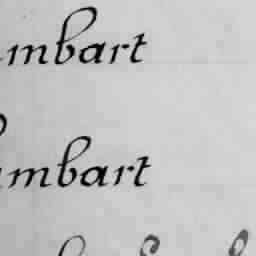 mbart
mbart